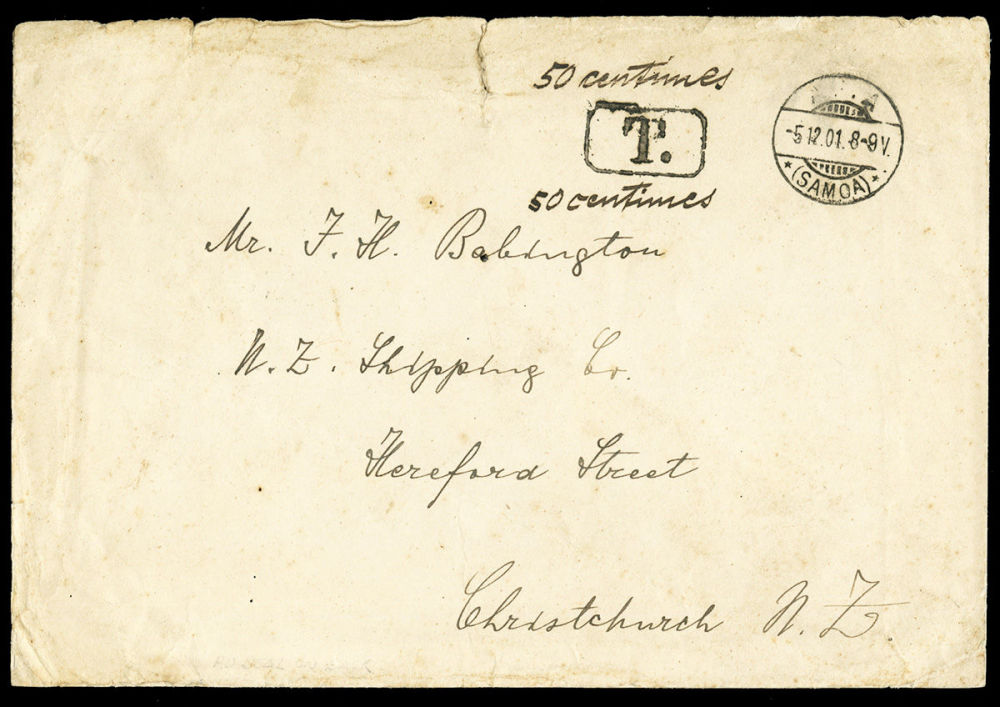 50 centimes
T.
50 centimes
-5.12.01. 8-9V.
* (SAMOA) *
Mr. F. H. Babington
N. Z. Shipping Co.
Hereford Street
Christchurch N. Z